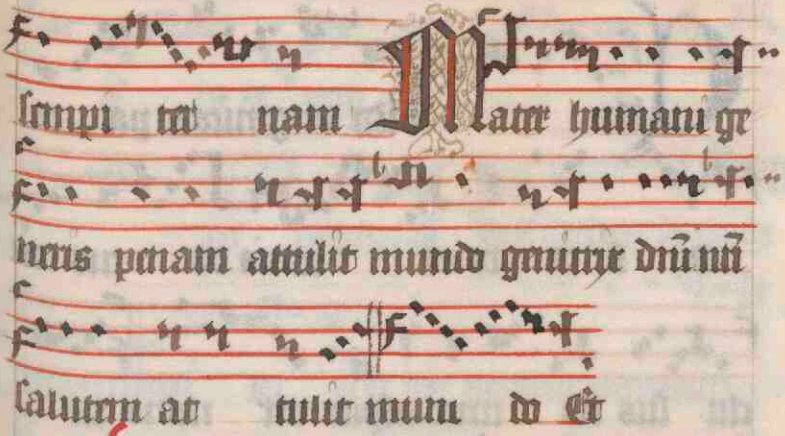 sempi ter nam Mater humani ge
neris penam attulit mundo genitrix dñi nři
salutem at tulit mun do Et